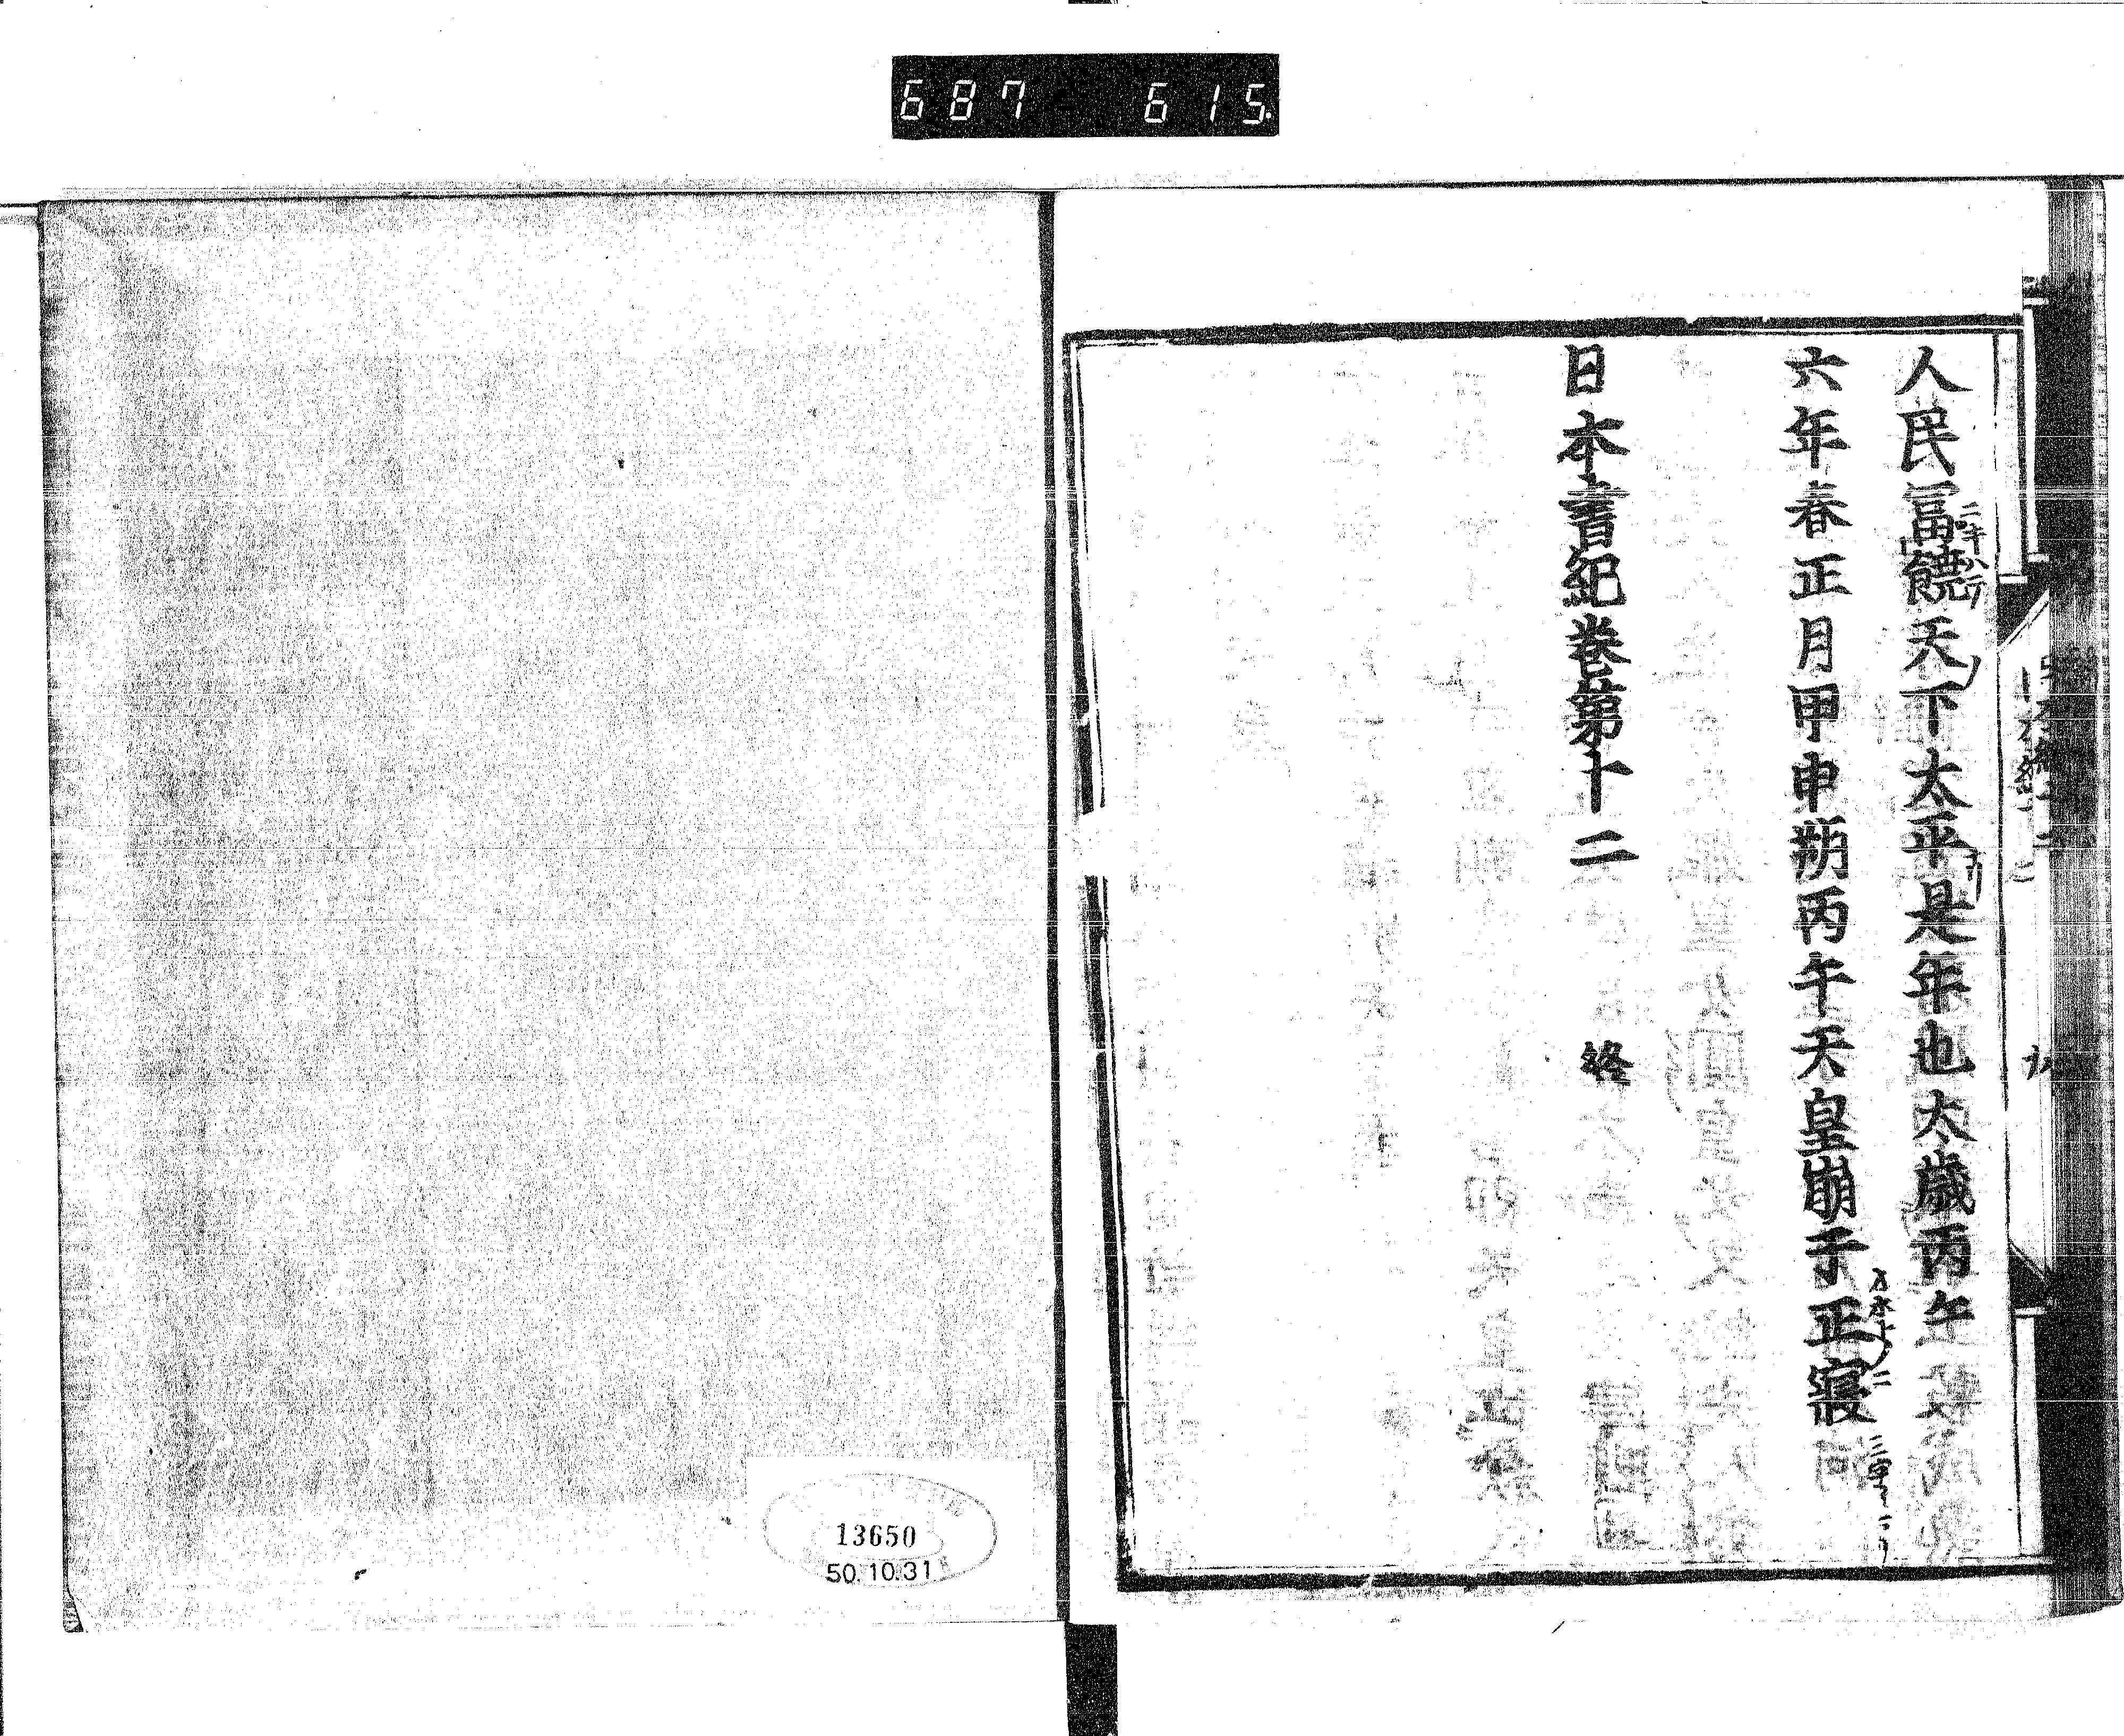 687 615
人民冨饒天下太平是年也太歳丙午
六年春正月甲申朔丙午天皇崩于正寢
日本書紀卷第十二 終
13650
50.10.31